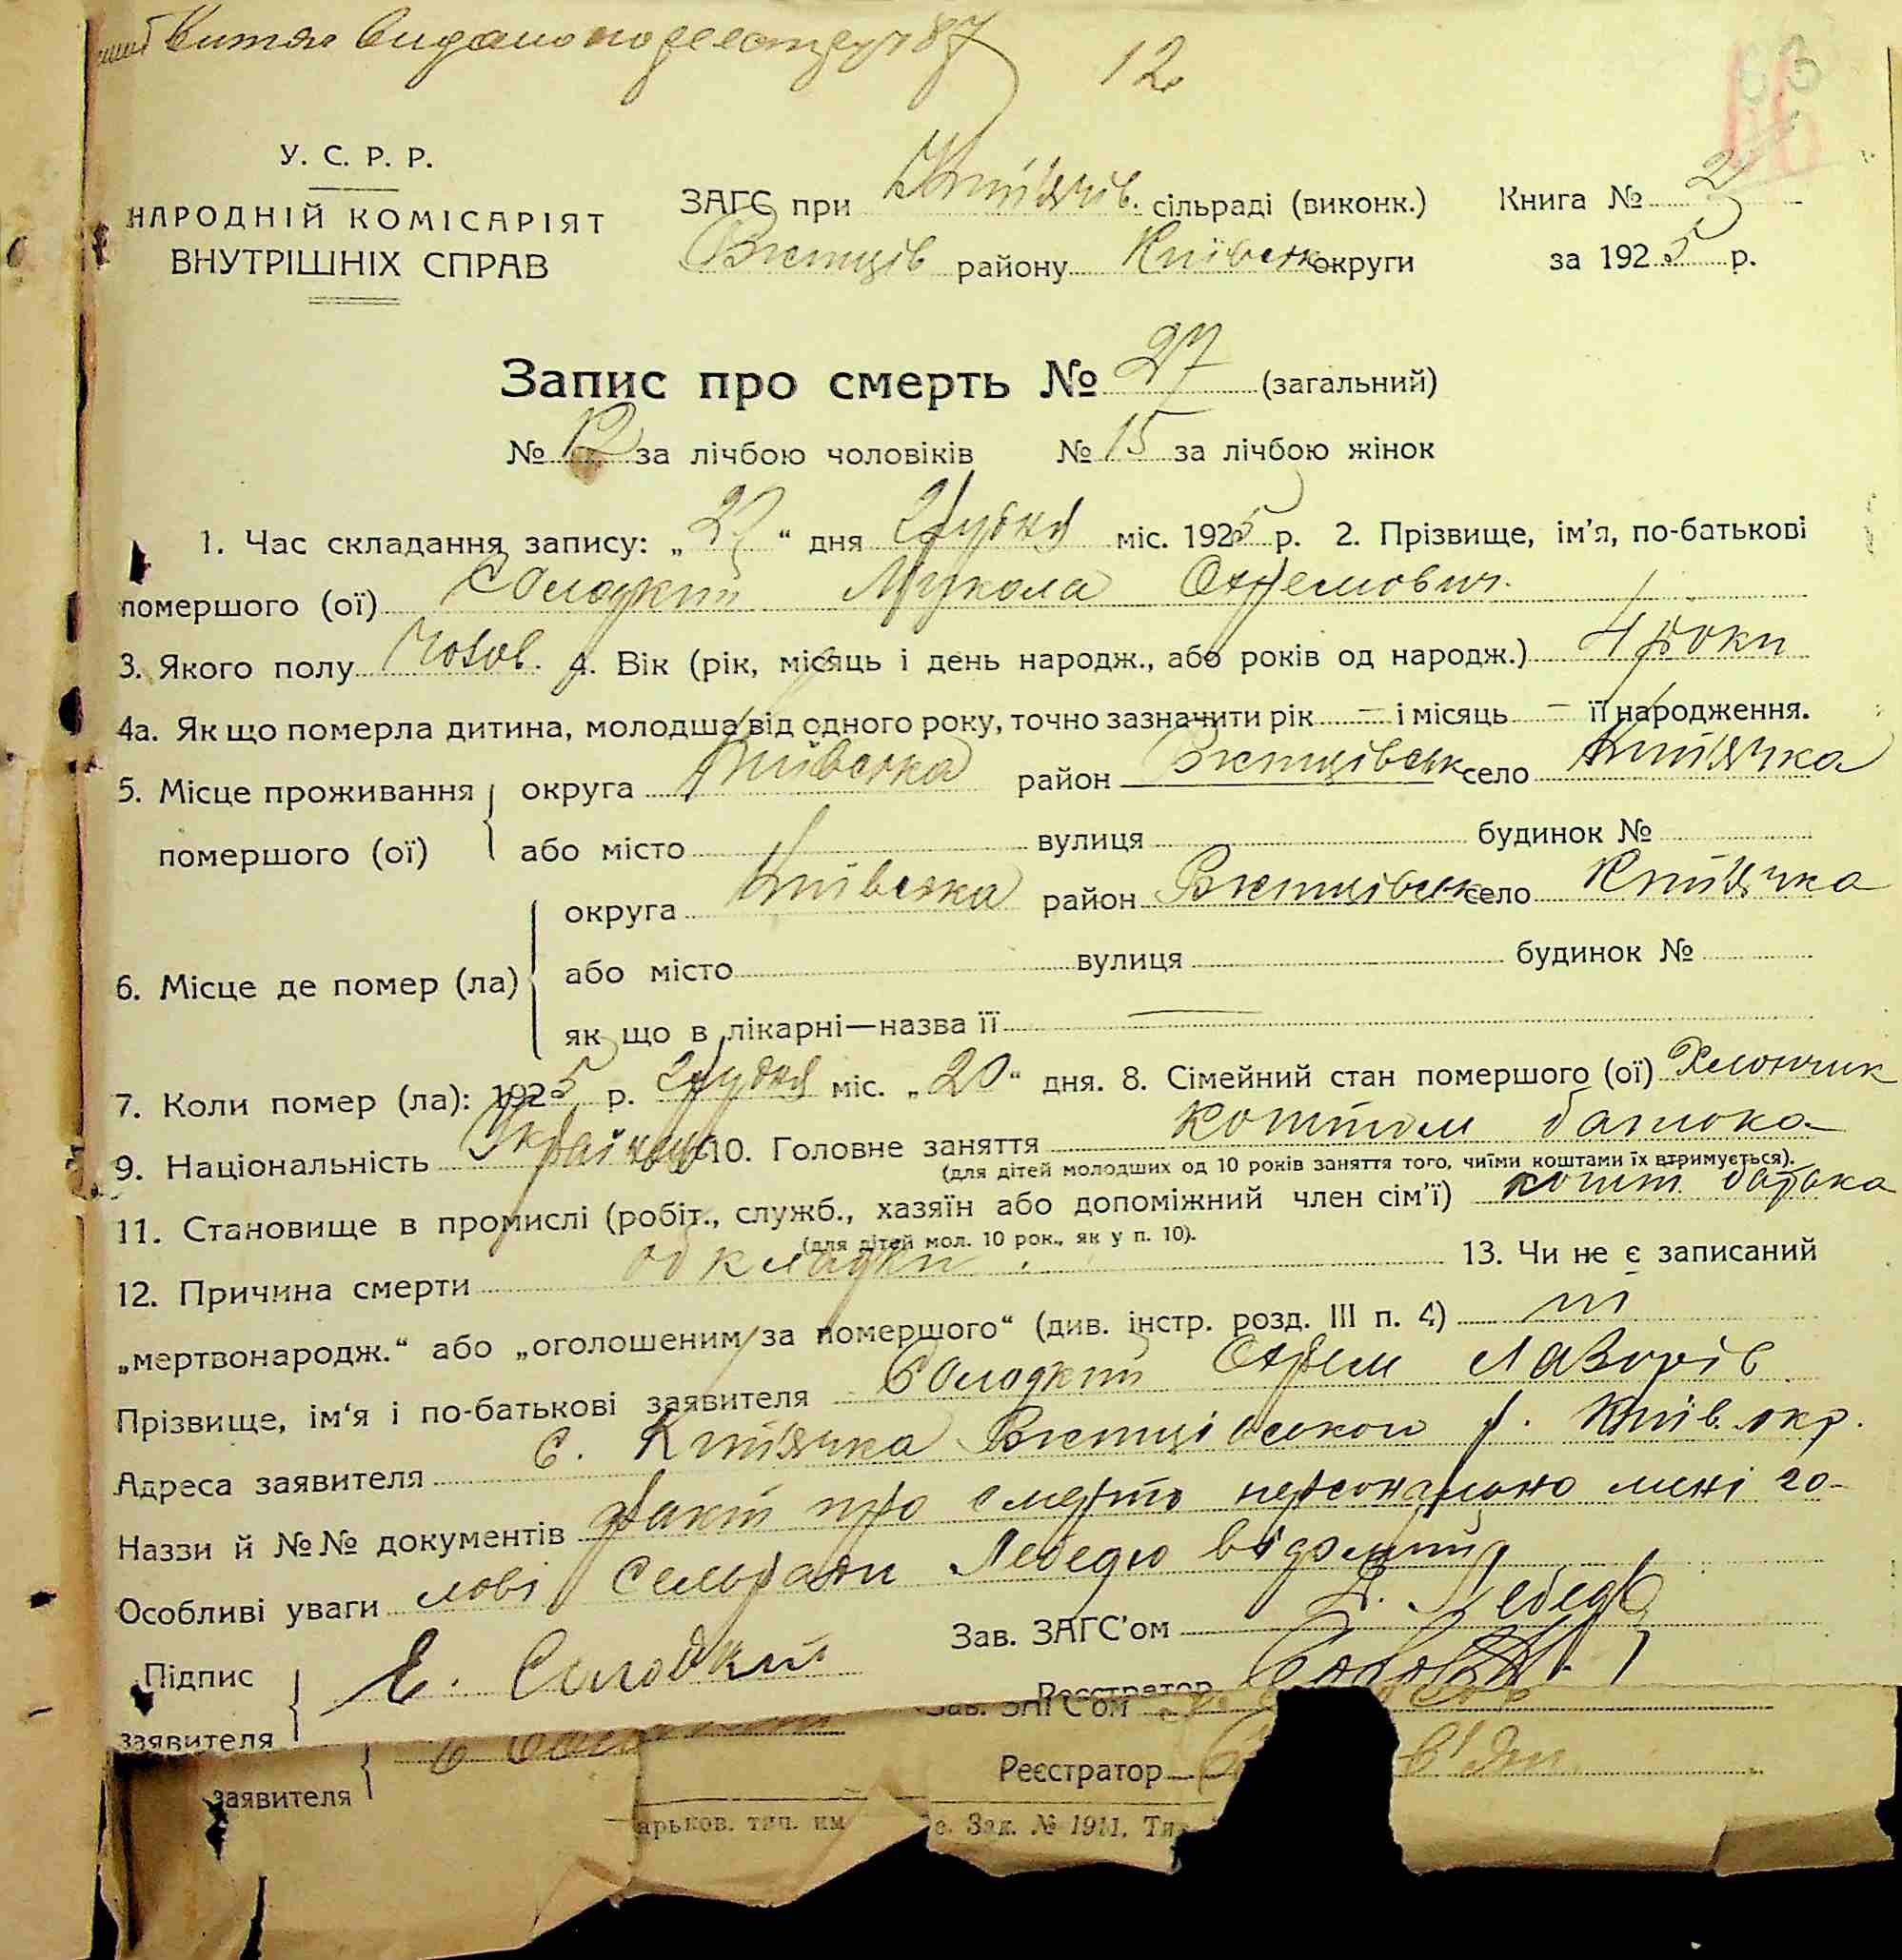 Витяг видано по реєстру 87
12
63
66
У. С. Р. Р.
НАРОДНІЙ КОМІСАРІЯТ
ВНУТРІШНІХ СПРАВ
ЗАГС при Книжич. сільраді (виконк.)
Книга № 2
району Київськ округи
за 1925 р.
Запис про смерть № 27 (загальний)
№ 12 за лічбою чоловіків № 15 за лічбою жінок
1. Час складання запису: „ 22 “ дня Грудня міс. 1925 р. 2. Прізвище, ім'я, по-батькові
помершого (ої) Солодкий Мукола Охремович.
3. Якого полу Чолов. 4. Вік (рік, місяць і день народж., або років од народж.) 4 роки
4а. Як що померла дитина, молодша від одного року, точно зазначити рік — і місяць — її народження.
5. Місце проживання округа Київська район село
помершого (ої) або місто вулиця будинок №
округа Київська район село
6. Місце де помер (ла) або місто вулиця будинок №
як що в лікарні—назва її —
7. Коли помер (ла): 1925 р. Грудня міс. „20“ дня. 8. Сімейний стан помершого (ої) Хлопчик
9. Національність Українець 10. Головне заняття коштом батька
(для дітей молодших од 10 років заняття того, чиїми коштами їх втримується).
11. Становище в промислі (робіт., служб., хазяїн або допоміжний член сім'ї) кошт. батька
(для дітей мол. 10 рок., як у п. 10).
12. Причина смерти од 13. Чи не є записаний
„мертвонародж.“ або „оголошеним за помершого“ (див. інстр. розд. III п. 4) ні
Прізвище, ім'я і по-батькові заявителя Солодкий Охрем Лазорів
Адреса заявителя с. р. Київ. окр.
Наззи й №№ документів факт про смерть персонально мені го-
Особливі уваги лові сельради Лебедю відомий
Зав. ЗАГС'ом Лебедь
Підпис
заявителя Е. Солодкий
Реєстратор
Зав. ЗАГС'ом
Реєстратор
заявителя
арьков. тип. им е. Зак. № 1911. Ти